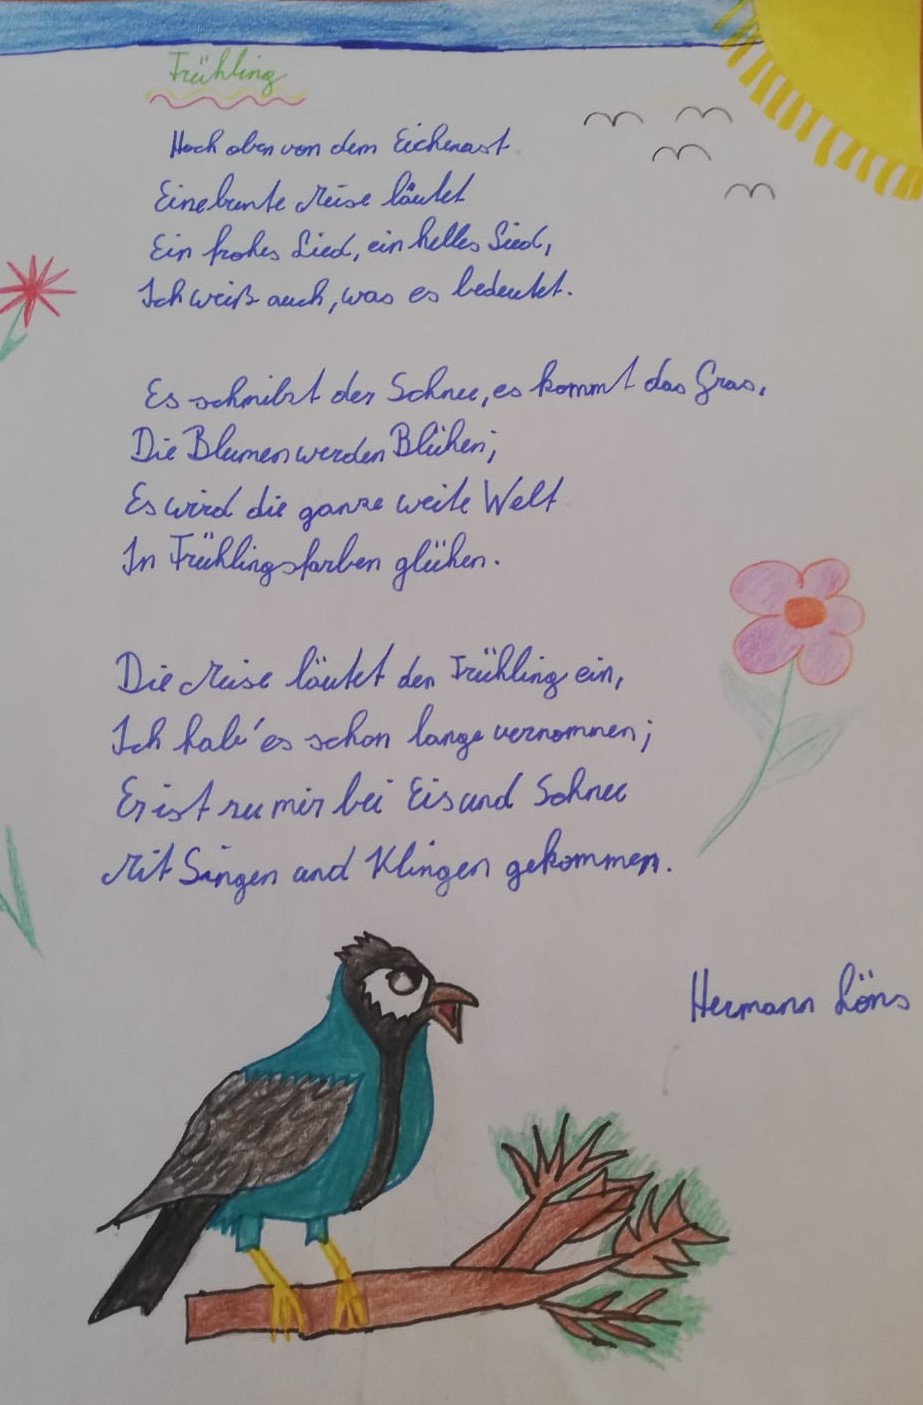 Frühling
Hoch oben von dem Eichenast
Eine bunte Meise läutet
Ein frohes Lied, ein helles Lied,
Ich weiß auch, was es bedeutet.
Es schmilzt der Schnee, es kommt das Gras,
Die Blumen werden Blühen;
Es wird die ganze weite Welt
In Frühlingsfarben glühen.
Die Meise läutet den Frühling ein,
Ich hab' es schon lange vernommen;
Er ist zu mir bei Eis und Schnee
Mit Singen und Klingen gekommen.
Hermann Löns